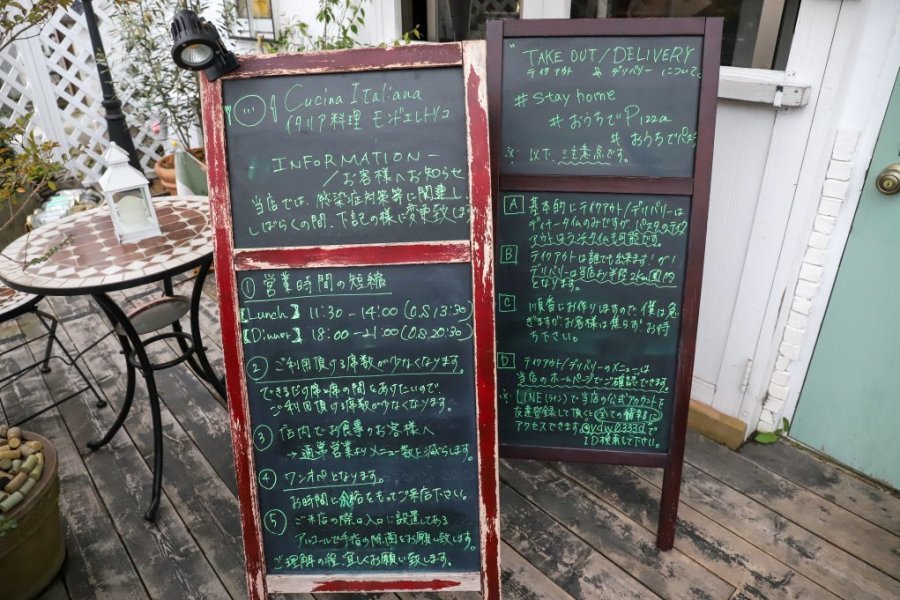 Cucina Italiana
イタリア料理 モンドエレトリコ
INFORMATION
お客様へお知らせ
当店では、感染症対策等に関連し
しばらくの間、下記の様に変更致しま
① 営業時間の短縮
【Lunch】 11:30 - 14:00 (O.S.13:30)
【Dinner】 18:00 - 21:00 (O.S.20:30)
② ご利用頂ける席数が少なくなります。
できるだけ席と席の間をあけたいので
ご利用頂ける席数が少なくなります。
③ 店内でお食事のお客様へ
→通常営業よりメニュー数を減らします。
④ ワンオペとなります。
お時間に余裕をもってご来店下さい。
⑤ ご来店の際は入口に設置してある
アルコールで手指の除菌をお願い致します。
ご理解の程、宜しくお願い致します。
TAKE OUT/DELIVERY
テイクアウト & デリバリー について
#stay home
#おうちでPizza
#おうちでパスタ
※ 以下、注意点です。
A 基本的にテイクアウト/デリバリーは
ディナータイムのみですが、パスタのテイク
アウトはランチタイムも可能です。
B テイクアウトは誰でも出来ます!が!
デリバリーは当店より半径2km圏内
となります。
C 順番にお作りしますので、僕は急
ぎますが、お客様は焦らずお待
ち下さい。
D テイクアウト/デリバリーのメニューは
当店のホームページでご確認できます。
※ LINE(ライン)で当店の公式アカウントを
友達登録して頂くと全ての情報に
アクセスできます。@ydw0333dで
ID検索して下さい。